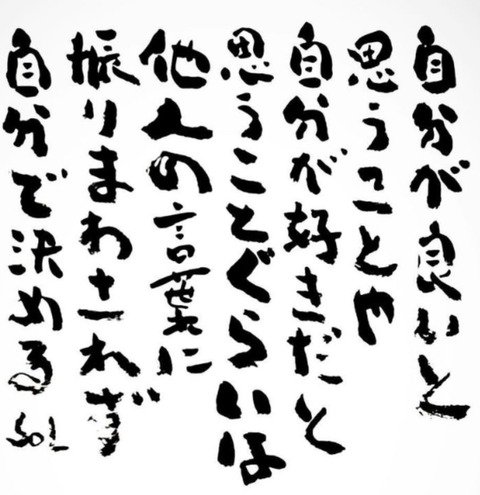 自分が良いと
思うことや
自分が好きだと
思うことぐらいは
他人の言葉に
振りまわされず
自分で決める
SOL